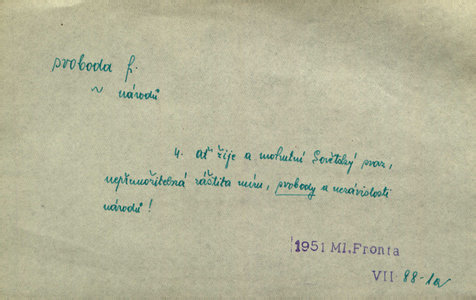 svoboda f.
~ národů
4. ať žije a mohutní Sovětský svaz,
nepřemožitelná záštita míru, svobody a nezávislosti
národů!
1951 Ml.Fronta
VII 88-1a